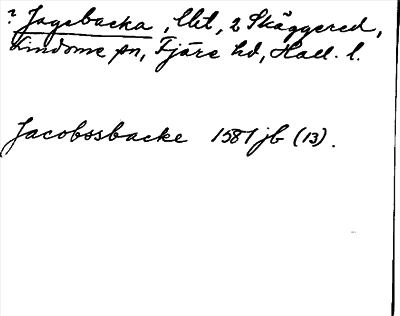 ? Jagsbacka, Ult, 2 Skäggered,
Lindome sn, Fjäre hd, Hall. l.
Jacobssbacke 1581 jb (13).